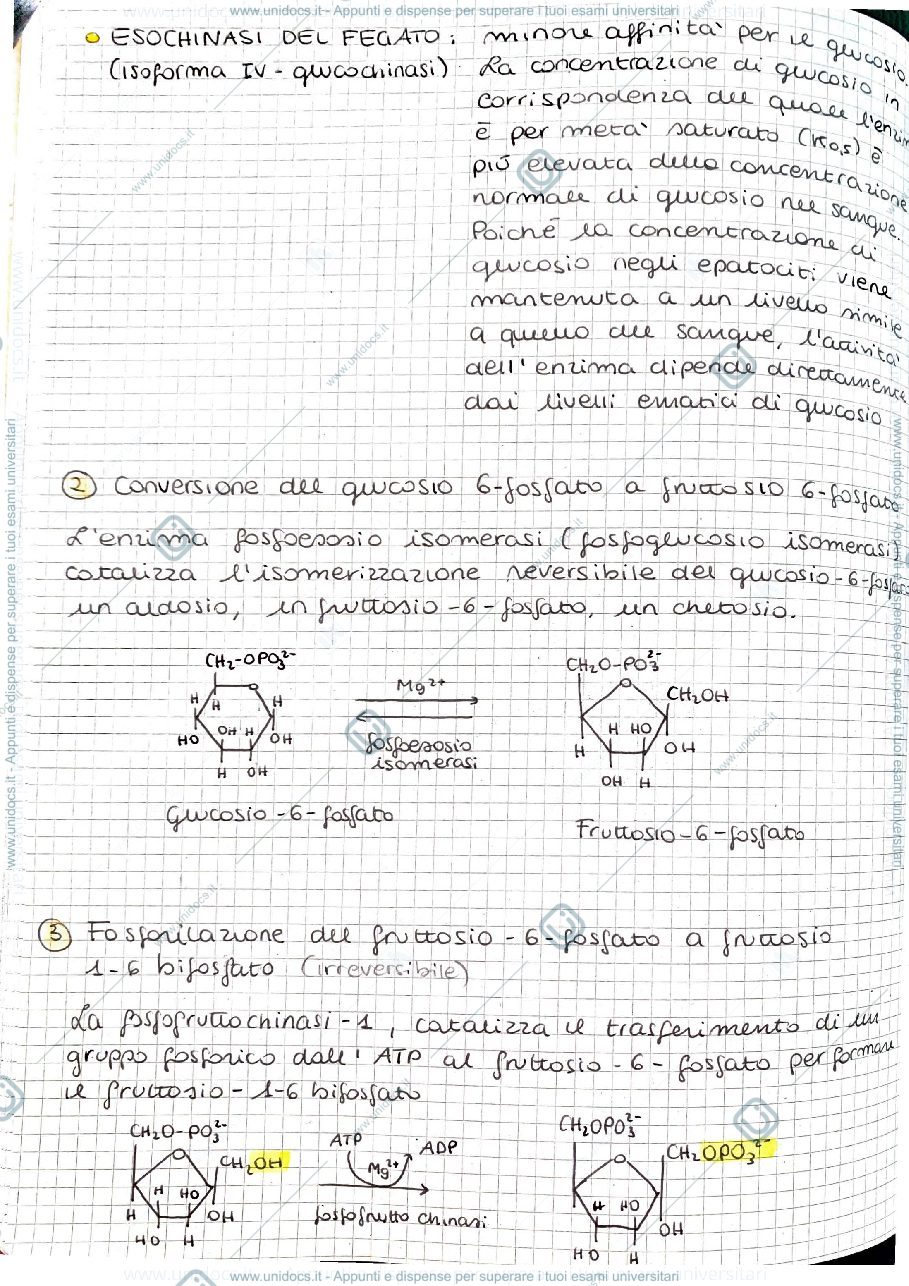 www.unidocs.it - Appunti e dispense per superare i tuoi esami universitari
• ESOCHINASI DEL FEGATO: minore affinità per il glucosio.
(isoforma IV - glucochinasi) La concentrazione di glucosio in
corrispondenza del quale l'enzim
è per metà saturato (K0,5) è
più elevata della concentrazione
normale di glucosio nel sangue.
Poiché la concentrazione di
glucosio negli epatociti viene
mantenuta a un livello simile
a quello del sangue, l'attività
dell'enzima dipende direttamente
dai livelli ematici di glucosio
2 Conversione del glucosio 6-fosfato a fruttosio 6-fosfato
L'enzima fosfoesosio isomerasi (fosfoglucosio isomerasi)
catalizza l'isomerizzazione reversibile del glucosio-6-fosfato
un aldosio, in fruttosio-6-fosfato, un chetosio.
CH2-OPO3 2-
O
H H H
HO OH H OH
H OH
Glucosio-6-fosfato
Mg2+
fosfoesosio
isomerasi
CH2O-PO3 2-
O
CH2OH
H HO
H OH
OH H
Fruttosio-6-fosfato
3 Fosforilazione del fruttosio-6-fosfato a fruttosio
1-6 bifosfato (irreversibile)
La fosfofruttochinasi-1, catalizza il trasferimento di un
gruppo fosforico dall'ATP al fruttosio-6-fosfato per formare
il fruttosio-1-6 bifosfato
CH2O-PO3 2-
O
CH2OH
H HO
H OH
HO H
ATP ADP
Mg2+
fosfofrutto chinasi
CH2OPO3 2-
O
CH2OPO3 2-
H HO
OH
HO H
www.unidocs.it - Appunti e dispense per superare i tuoi esami universitari